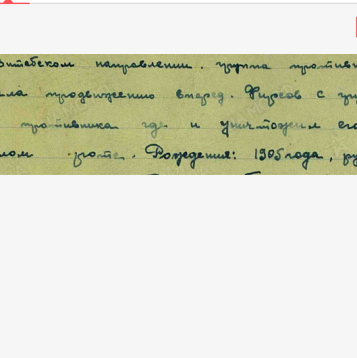 витебском направлении. группа противн
ила продвижению вперед. Фирсов с гр
противника где и уничтожил ег
лом роте. Рождения: 1905 года, ру